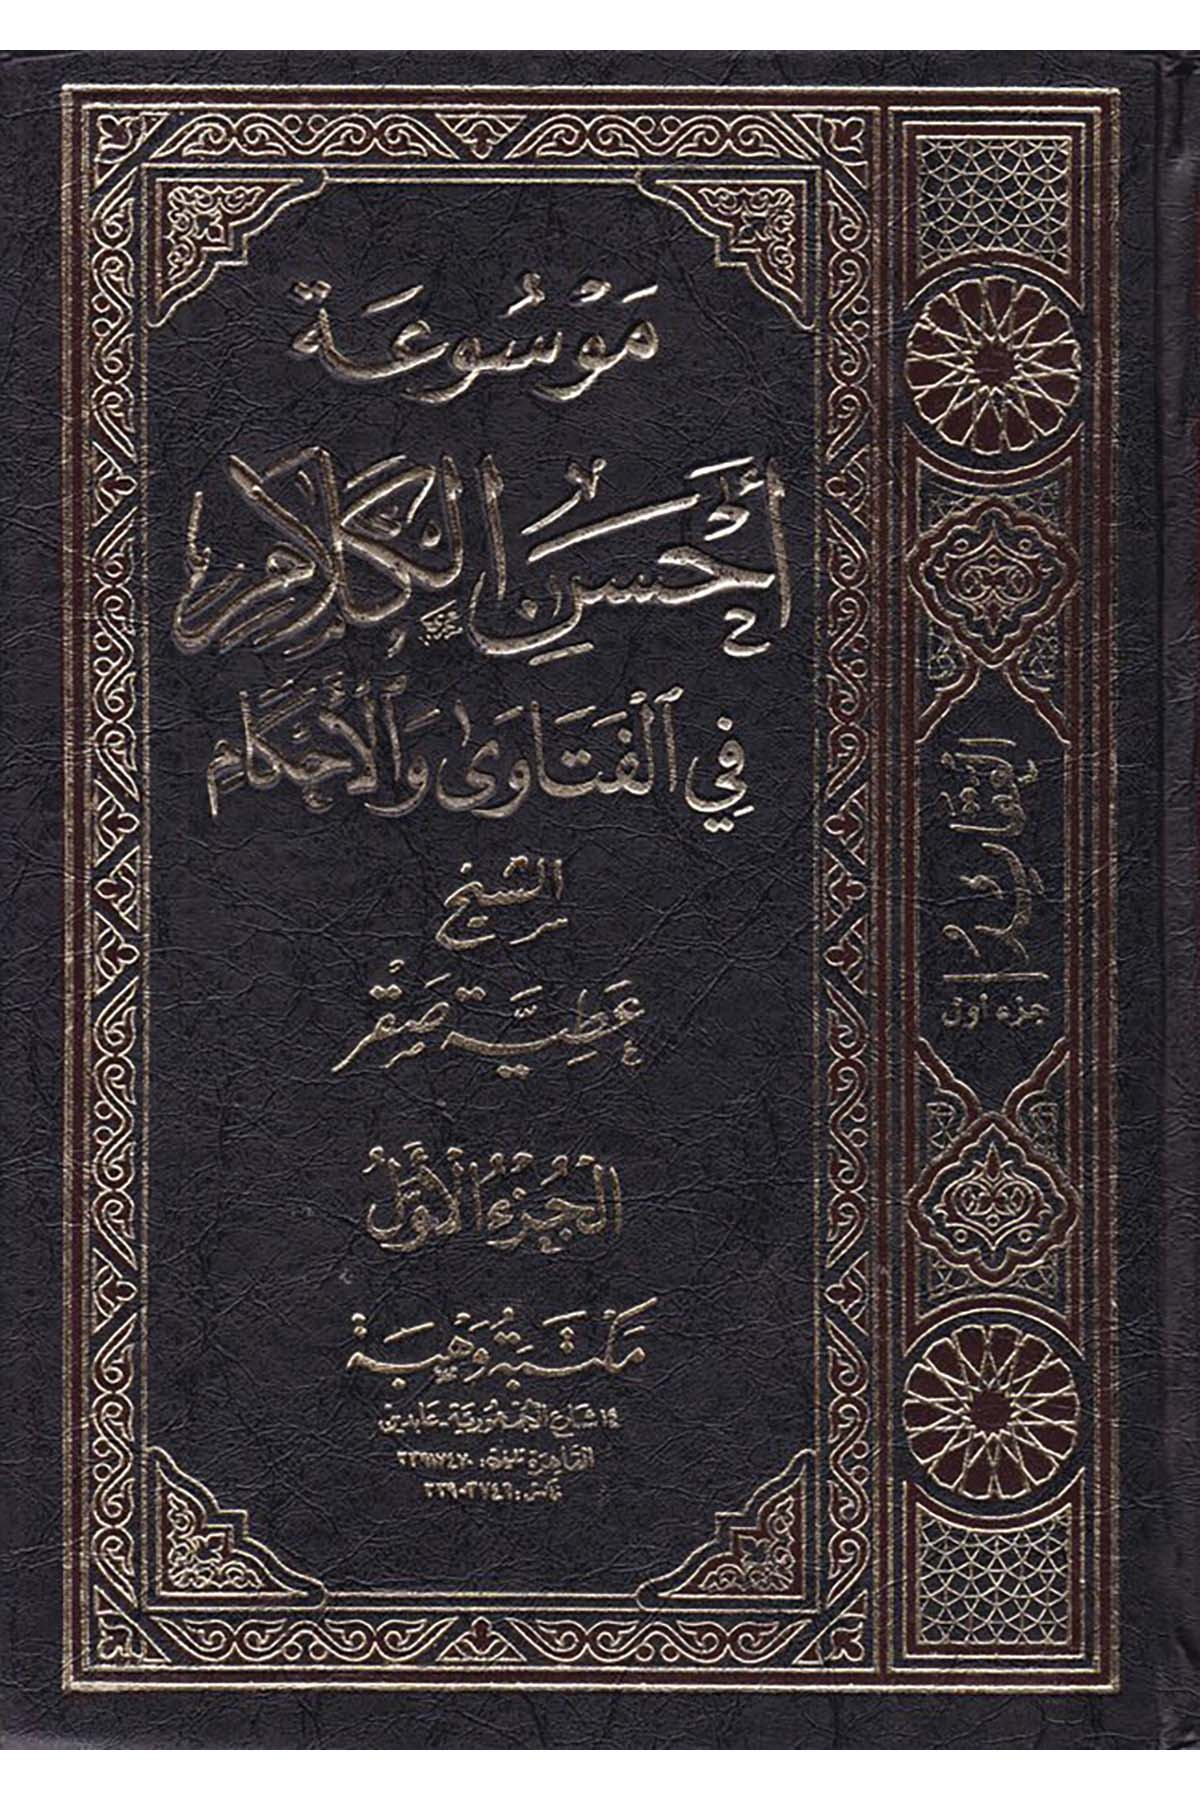 مَوْسُوعَة
أَحْسَنِ الكَلَام
فِي الْفَتَاوَى وَالْأَحْكَام
الشيخ
عَطِيَّة صَقْر
الْجُزْءُ الْأَوَّلُ
مَكْتَبَةُ وَهْبَة
١٤ شارع الجمهورية - عابدين
القاهرة تليفون: ٢٣٩١٧٤٧٠
فاكس: ٢٣٩٠٣٧٤٦
جزء أول